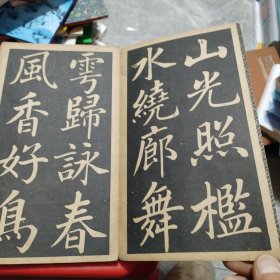 山光照檻
水繞廊舞
雩歸詠春
風香好鳥